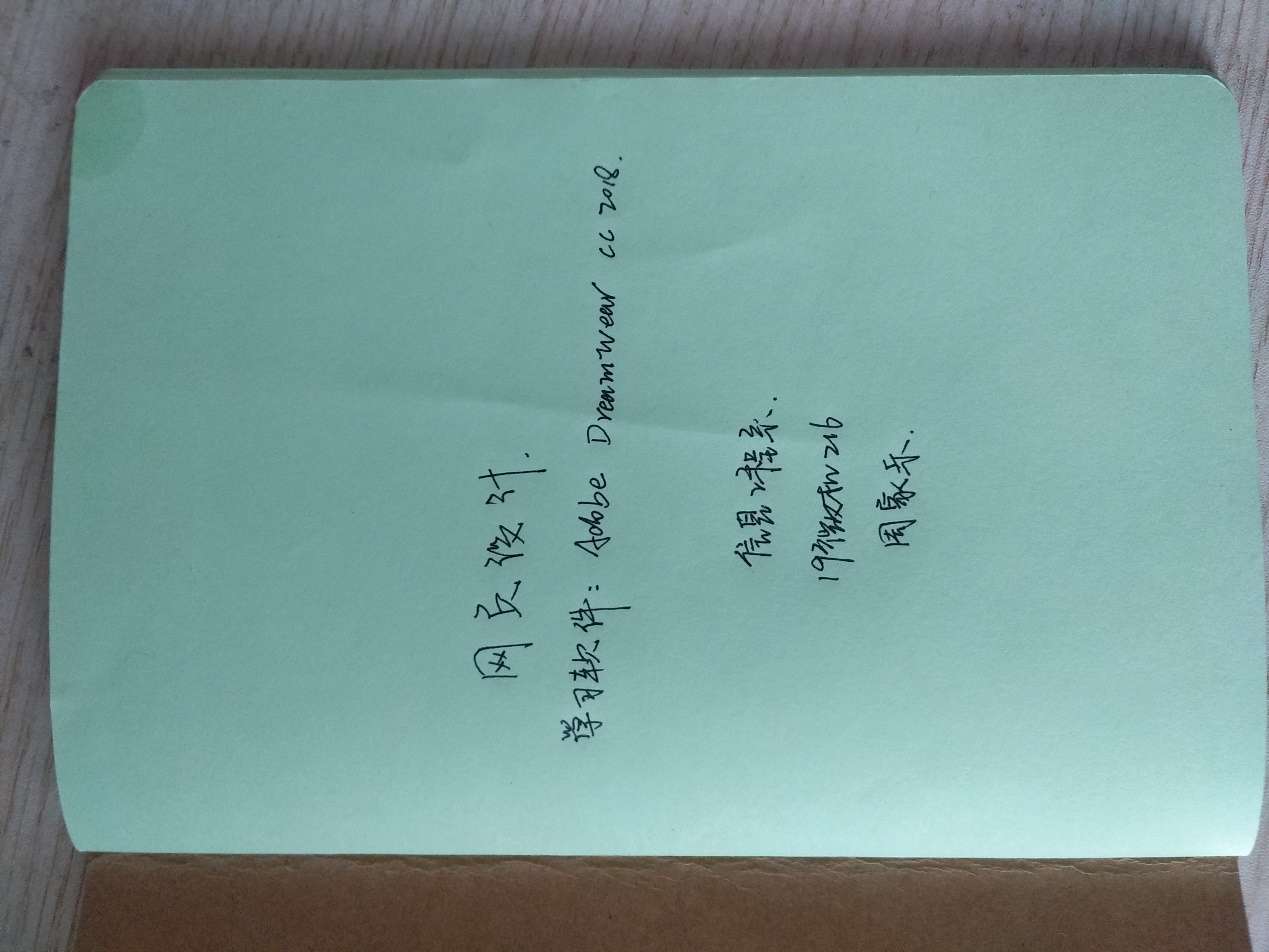 网页设计.
学习软件: Adobe Dreamwear CC 2018.
信息工程系.
19微机216
周家乐.